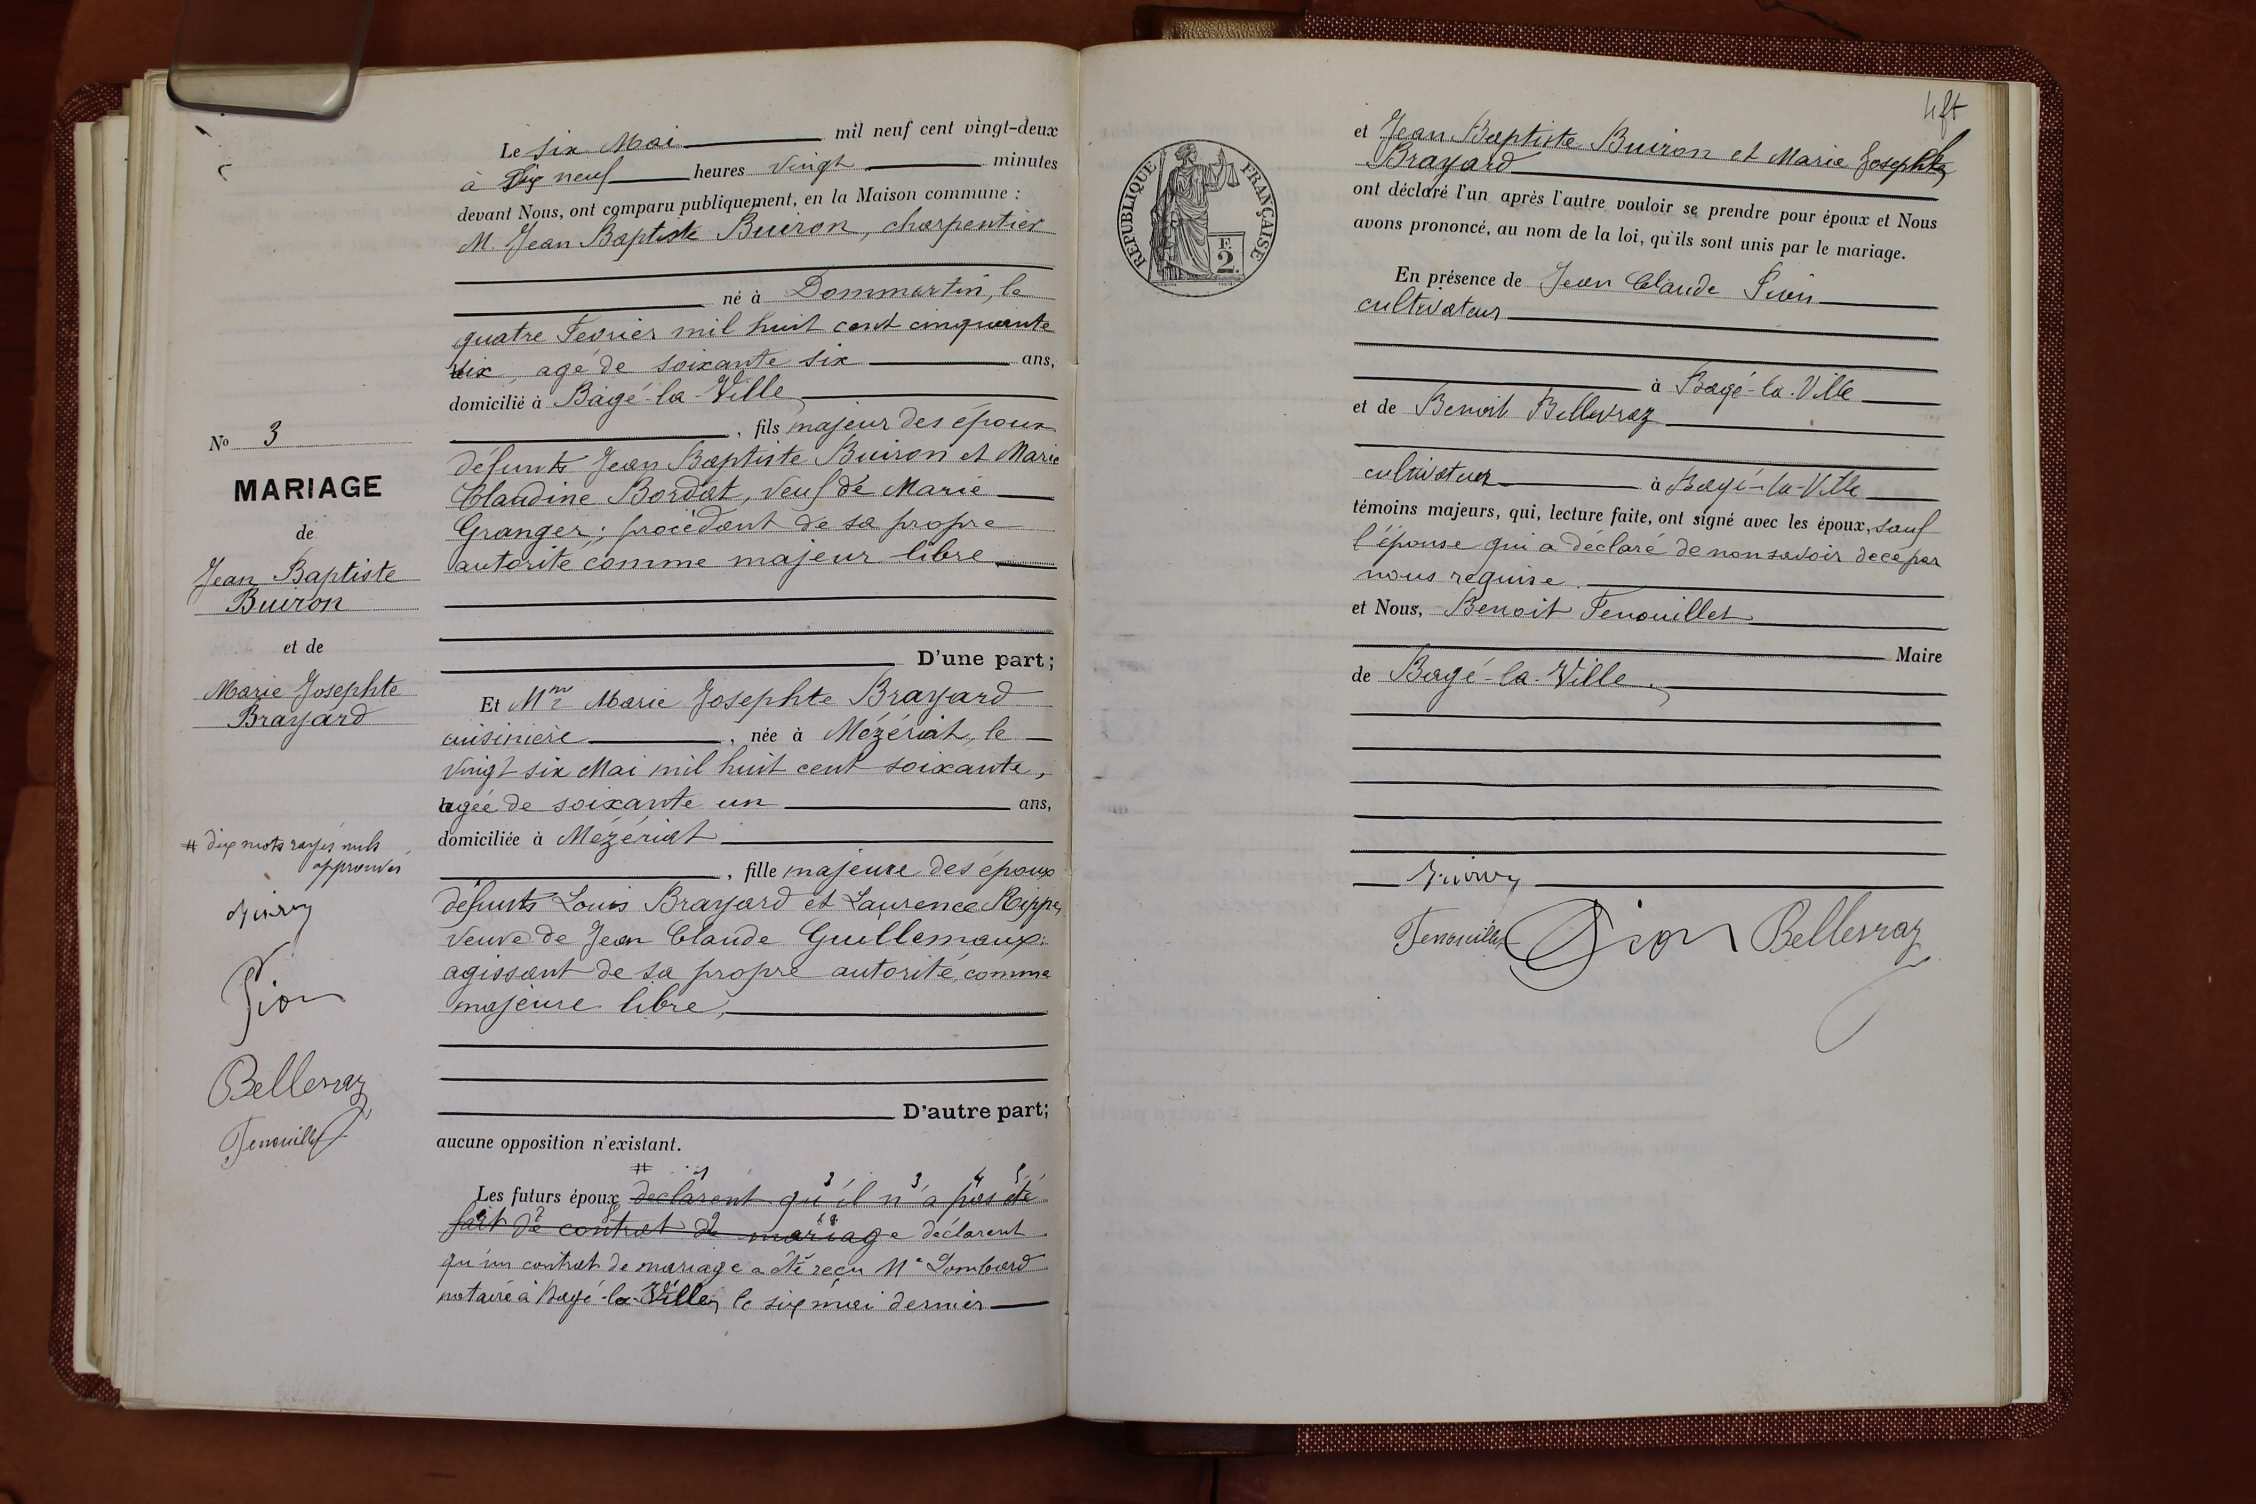 Le six Mai mil neuf cent vingt-deux
à neuf heures vingt minutes
devant Nous, ont comparu publiquement, en la Maison commune :
M. Jean Baptiste Buiron, charpentier
né à Dommartin, le
quatre Fevrier mil huit cent cinquante
six, agé de soixante six ans,
domicilié à Bâgé-la-Ville
, fils majeur des époux
défunts Jean Baptiste Buiron et Marie
Claudine Bordat, veuf de Marie
Granger ; procédant de sa propre
autorité comme majeur libre
D'une part ;
Et Mme Marie Josephte Brayard
cuisinière, née à Mézériat, le
vingt six Mai mil huit cent soixante,
agée de soixante un ans,
domiciliée à Mézériat
, fille majeure des époux
défunts Louis Brayard et Laurence Rippe,
veuve de Jean Claude Guillemaux ;
agissant de sa propre autorité, comme
majeure libre,
D'autre part ;
aucune opposition n'existant.
# 1 2 3 4 5
Les futurs époux declarent qu'il n'a pas été
fait de contrat de mariage déclarent
qu'un contrat de mariage a été reçu Me Lombard
notaire à Bagé-la-Ville, le six mai dernier
No 3
MARIAGE
de
Jean Baptiste
Buiron
et de
Marie Josephte
Brayard
# dix mots rayés nuls
approuvés
Buiron
Pion
Bellevraz
Fenouillet
4 ft
REPUBLIQUE FRANÇAISE
F.
2.
et Jean Baptiste Buiron et Marie Josephte
Brayard
ont déclaré l'un après l'autre vouloir se prendre pour époux et Nous
avons prononcé, au nom de la loi, qu'ils sont unis par le mariage.
En présence de Jean Claude Pion
cultivateur
à Bagé-la-Ville
et de Benoit Bellevraz
cultivateur à Bagé-la-Ville
témoins majeurs, qui, lecture faite, ont signé avec les époux, sauf
l'épouse qui a déclaré de non savoir de ce par
nous requise.
et Nous, Benoit Fenouillet
Maire
de Bagé-la-Ville.
Buiron
Fenouillet Pion Bellevraz